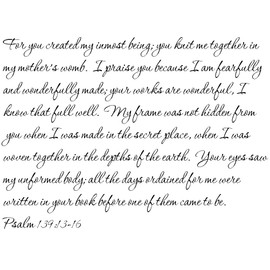 For you created my inmost being; you knit me together in
my mother's womb. I praise you because I am fearfully
and wonderfully made; your works are wonderful, I
know that full well. My frame was not hidden from
you when I was made in the secret place, when I was
woven together in the depths of the earth. Your eyes saw
my unformed body; all the days ordained for me were
written in your book before one of them came to be.
Psalm 139:13-16